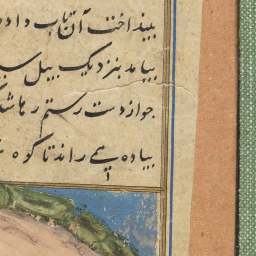 بینداخت آن تاب داده
بیامد بنزدیک بیل
جو از دست رستم رها شد
بیاده همی راند تا کوه